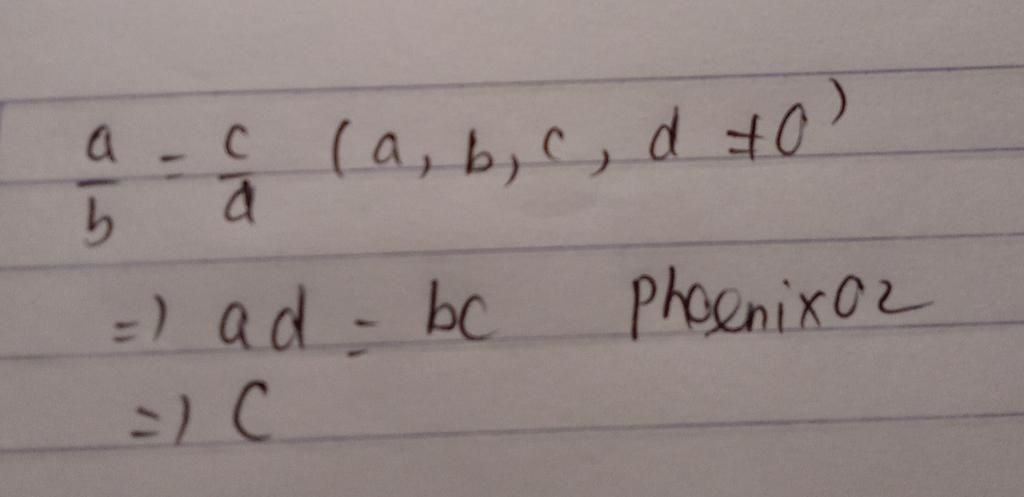 a/b = c/d (a, b, c, d ≠ 0)
=) ad = bc phoenix02
=) C